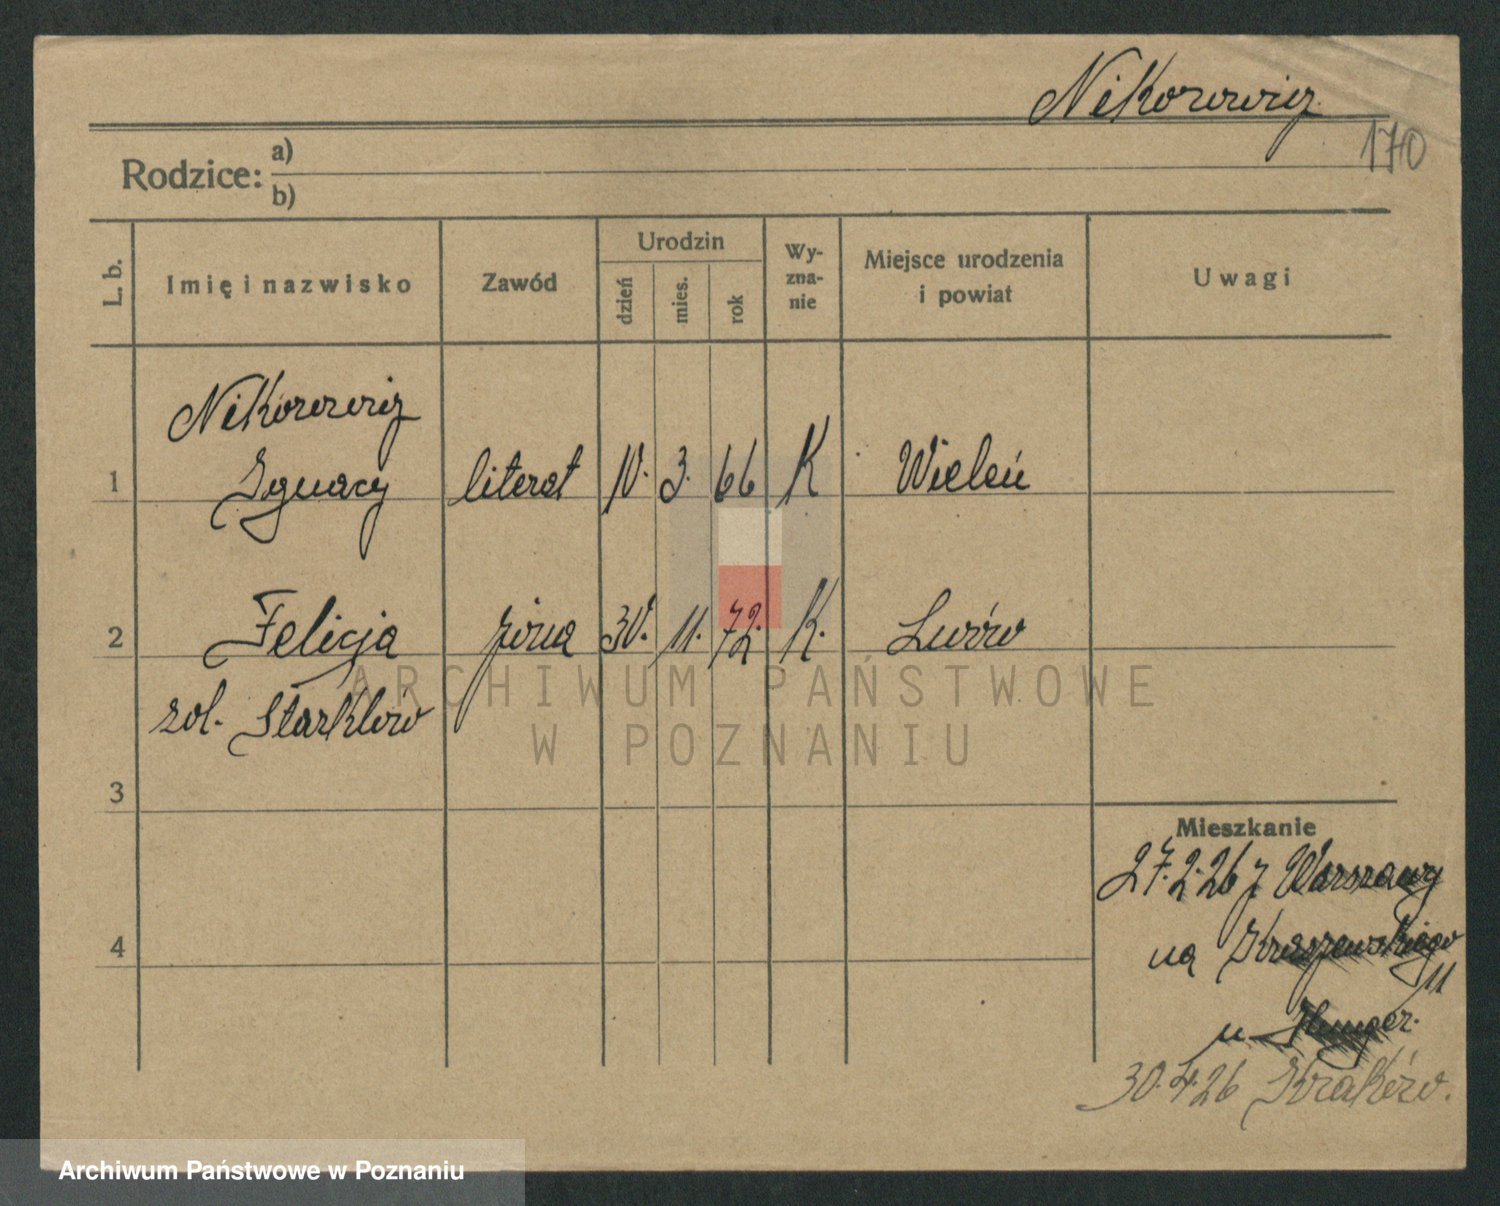 Nikorowicz
170
Rodzice: a)
b)
L. b.
Imię i nazwisko
Zawód
Urodzin
dzień
mies.
rok
Wy-
zna-
nie
Miejsce urodzenia
i powiat
Uwagi
Nikorowicz
1 Ignacy literat 10. 3. 66 K Wieleń
2 Felicja żona 30. 11. 72. K. Lwów
zol. Starklów
3
4
Mieszkanie
27.2.26 z Warszawy
na Kraszewskiego
11
u
30.4.26 Kraków.
ARCHIWUM PAŃSTWOWE
W POZNANIU
Archiwum Państwowe w Poznaniu